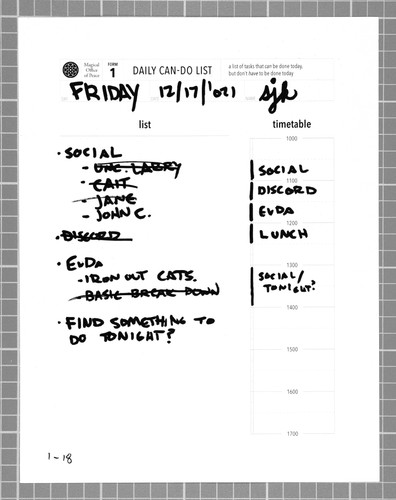 Magical Office of Peace
FORM 1
DAILY CAN-DO LIST
a list of tasks that can be done today,
but don't have to be done today
FRIDAY 12/17/'021 sjk
list
timetable
• SOCIAL
- UNC. LARRY
- CAIT
- JANE
- JOHN C.
• DISCORD
• EVDA
- IRON OUT CATS.
- BASIC BREAK DOWN
• FIND SOMETHING TO
DO TONIGHT?
1000
SOCIAL
1100
DISCORD
EVDA
1200
LUNCH
1300
SOCIAL/
TONIGHT?
1400
1500
1600
1700
1-18